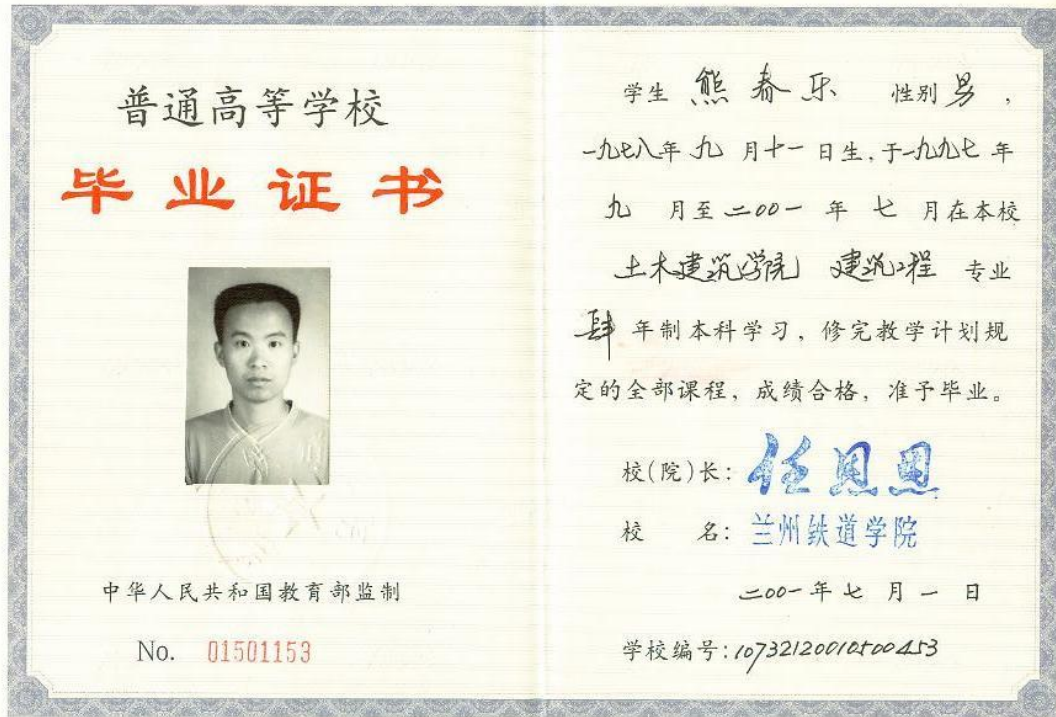 普通高等学校
毕业证书
中华人民共和国教育部监制
No. 01501153
学生 熊春乐 性别 男,
一九七八年 九 月十一日生,于一九九七 年
九 月至 二00一 年 七 月在本校
土木建筑学院 建筑工程 专业
肆 年制本科学习,修完教学计划规
定的全部课程,成绩合格,准予毕业。
校(院)长: 任恩恩
校 名: 兰州铁道学院
二00一 年 七 月 一 日
学校编号: 10732120010500453